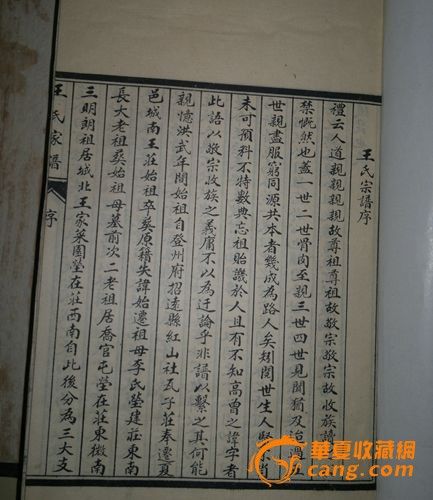 王氏宗譜序
禮云人道親親親親故尊祖尊祖故敬宗敬宗故收族
禁慨然也蓋一世二世骨肉至親三世四世見聞猶及迨過
世親盡服窮同源共本者幾成為路人矣矧閱世生人賢
未可預料不特數典忘祖貽譏於人且有不知高曾之諱字者
此語以敬宗收族之義庸不以為迂論乎非譜以繫之其何能
親憶洪武年間始祖自登州府招遠縣紅山社瓦子莊奉遷夏
邑城南王莊始祖卒葬原籍失諱始遷祖母李氏塋建莊東南
長大老祖葬始祖母墓前次二老祖居喬官屯塋在莊東微南
三明朗祖居城北王家菜園塋在莊西南自此後分為三大支
王氏家譜 序
华夏收藏网
cang.com